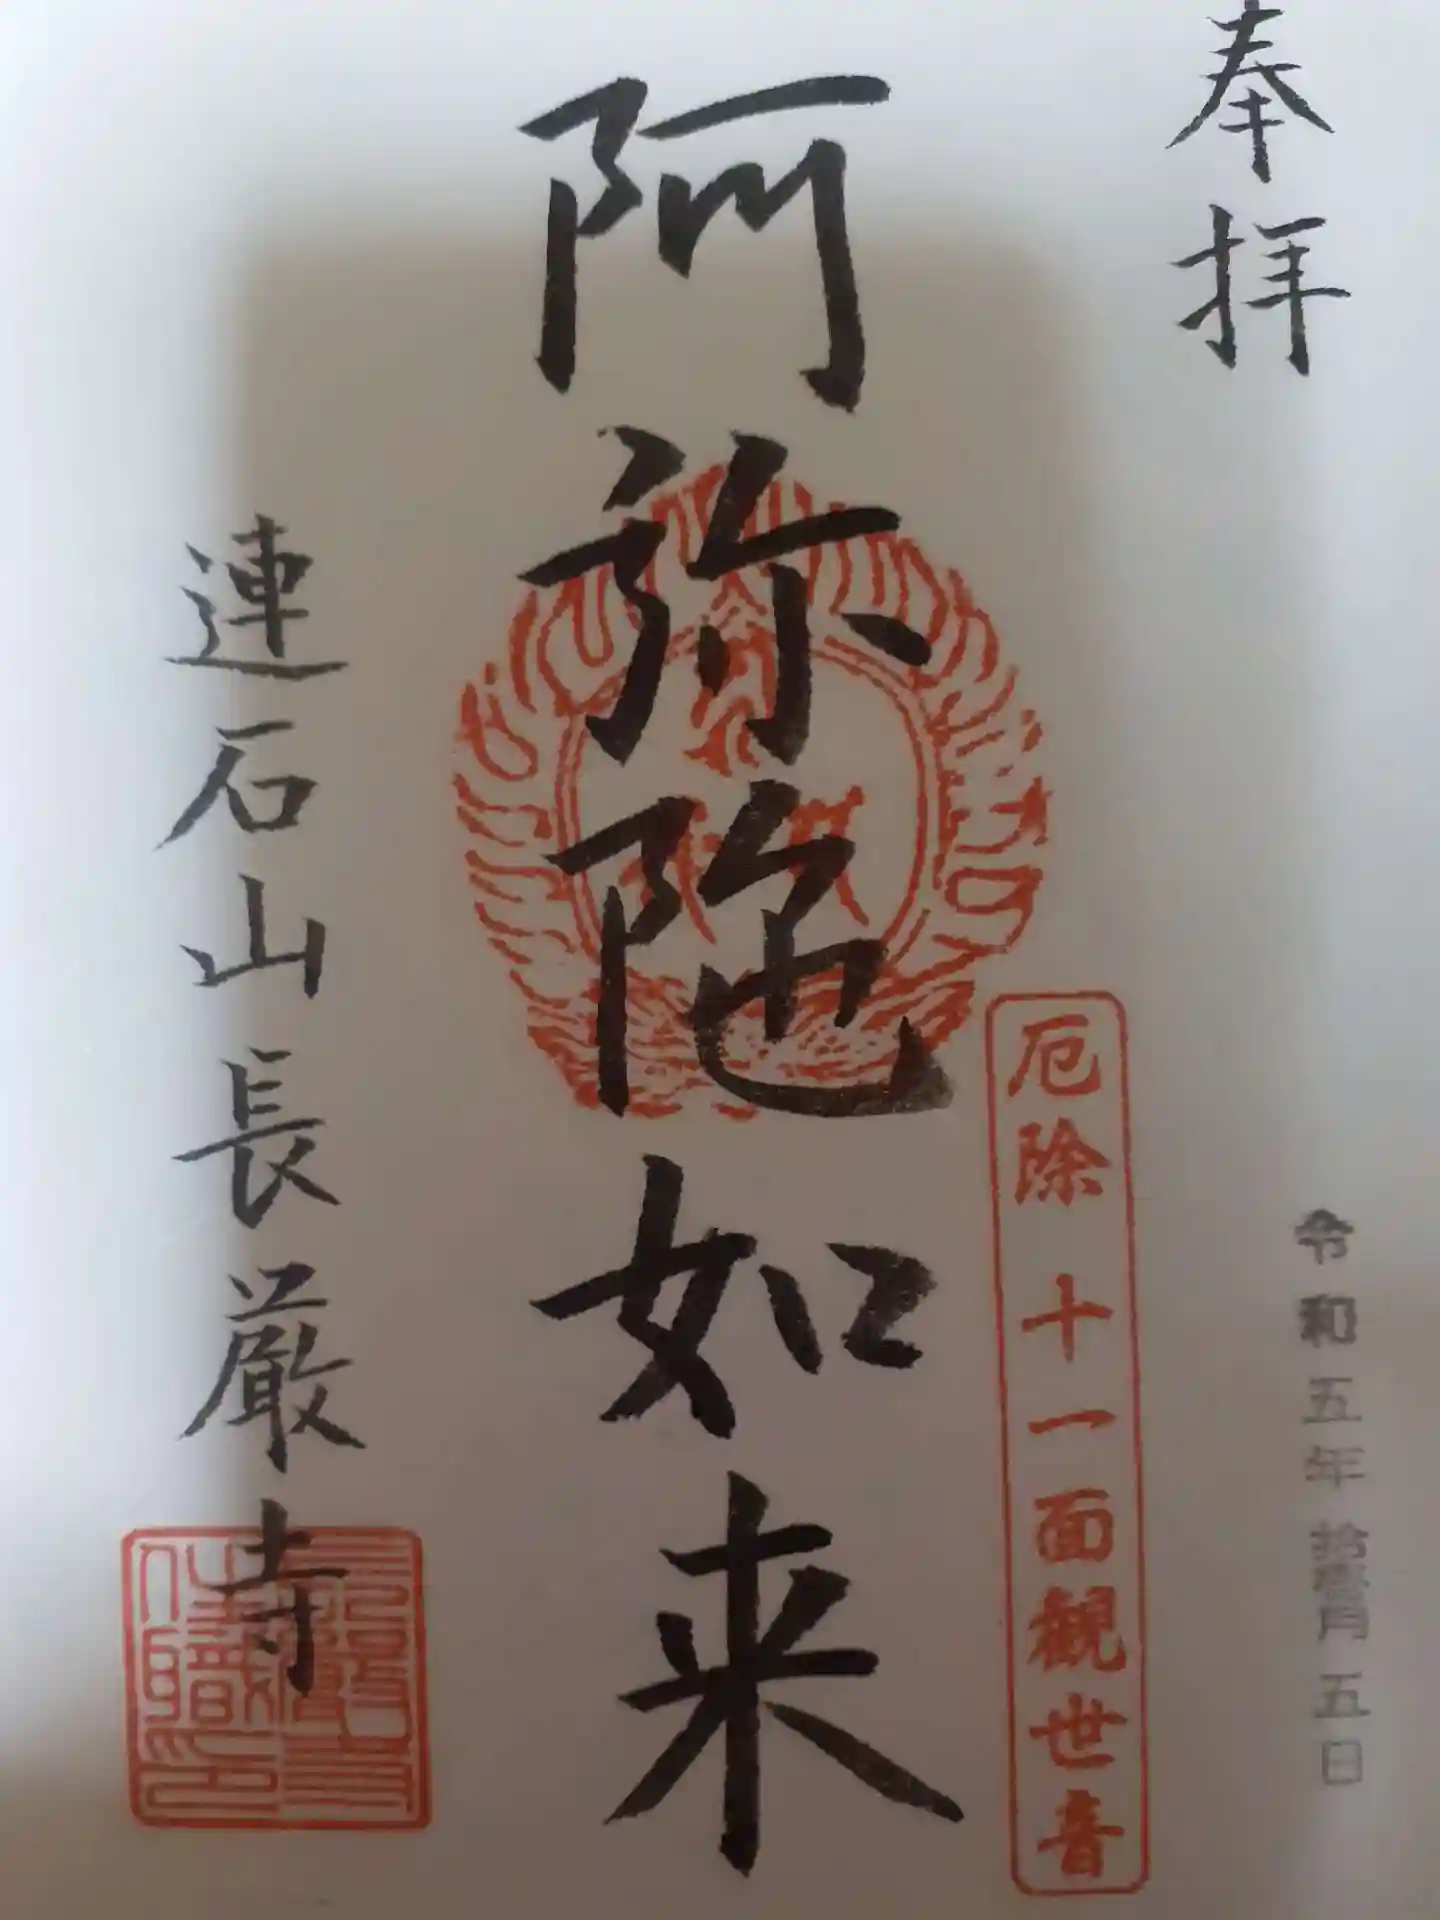 奉拝
令和五年拾壱月五日
厄除十一面観世音
阿弥陀如来
連石山長厳寺